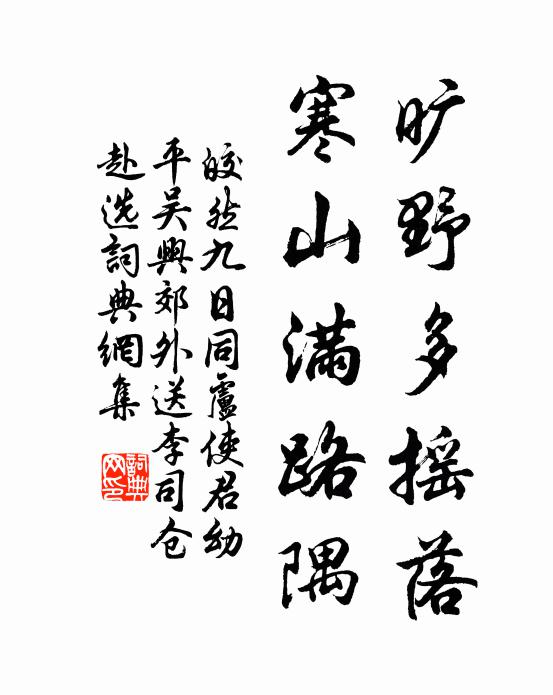 旷野多摇落
寒山满路隅
皎然九日同盧使君幼
平吴興郊外送李司仓
赴选詞典網集
詞典网印